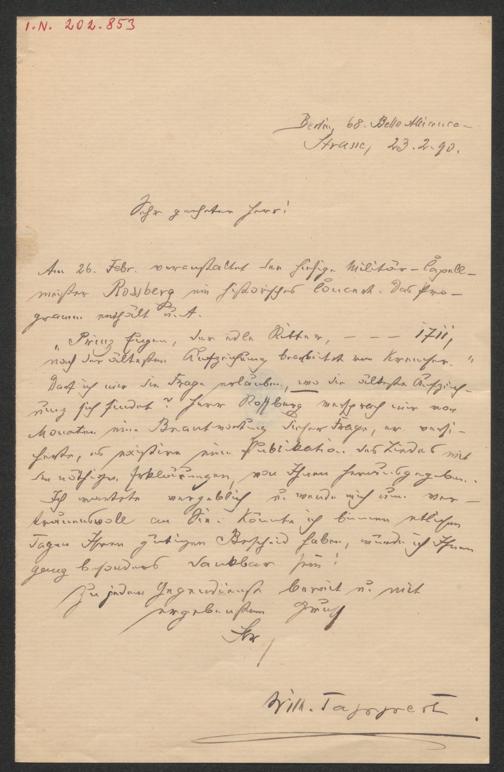 I.N. 202.853
Berlin, 68. Belle Alliance-
Strasse, 23.2.90.
Sehr geehrter Herr!
Am 26. Febr. veranstaltet der hiesige Militär-Capell-
meister Rossberg ein historisches Concert. Das Pro-
gramm enthält u. A.
„Prinz Eugen, der edle Ritter, - - - 1711,
nach der ältesten Aufzeichnung bearbeitet von
Darf ich mir die Frage erlauben, wo die älteste Aufzeich-
nung sich findet? Herr Rossberg versprach mir vor
Monaten eine Beantwortung dieser Frage, er versi-
cherte, es existire eine Publikation des Liedes mit
den nöthigen Erklärungen, von Ihnen herausgegeben.
Ich wartete vergeblich u. wende mich nun ver-
trauensvoll an Sie. Könnte ich binnen etlichen
Tagen Ihren gütigen Bescheid haben, würde ich Ihnen
ganz besonders dankbar sein!
Zu jedem Gegendienste bereit u. mit
ergebenstem Gruß
Ihr
Wilh. Tappert.